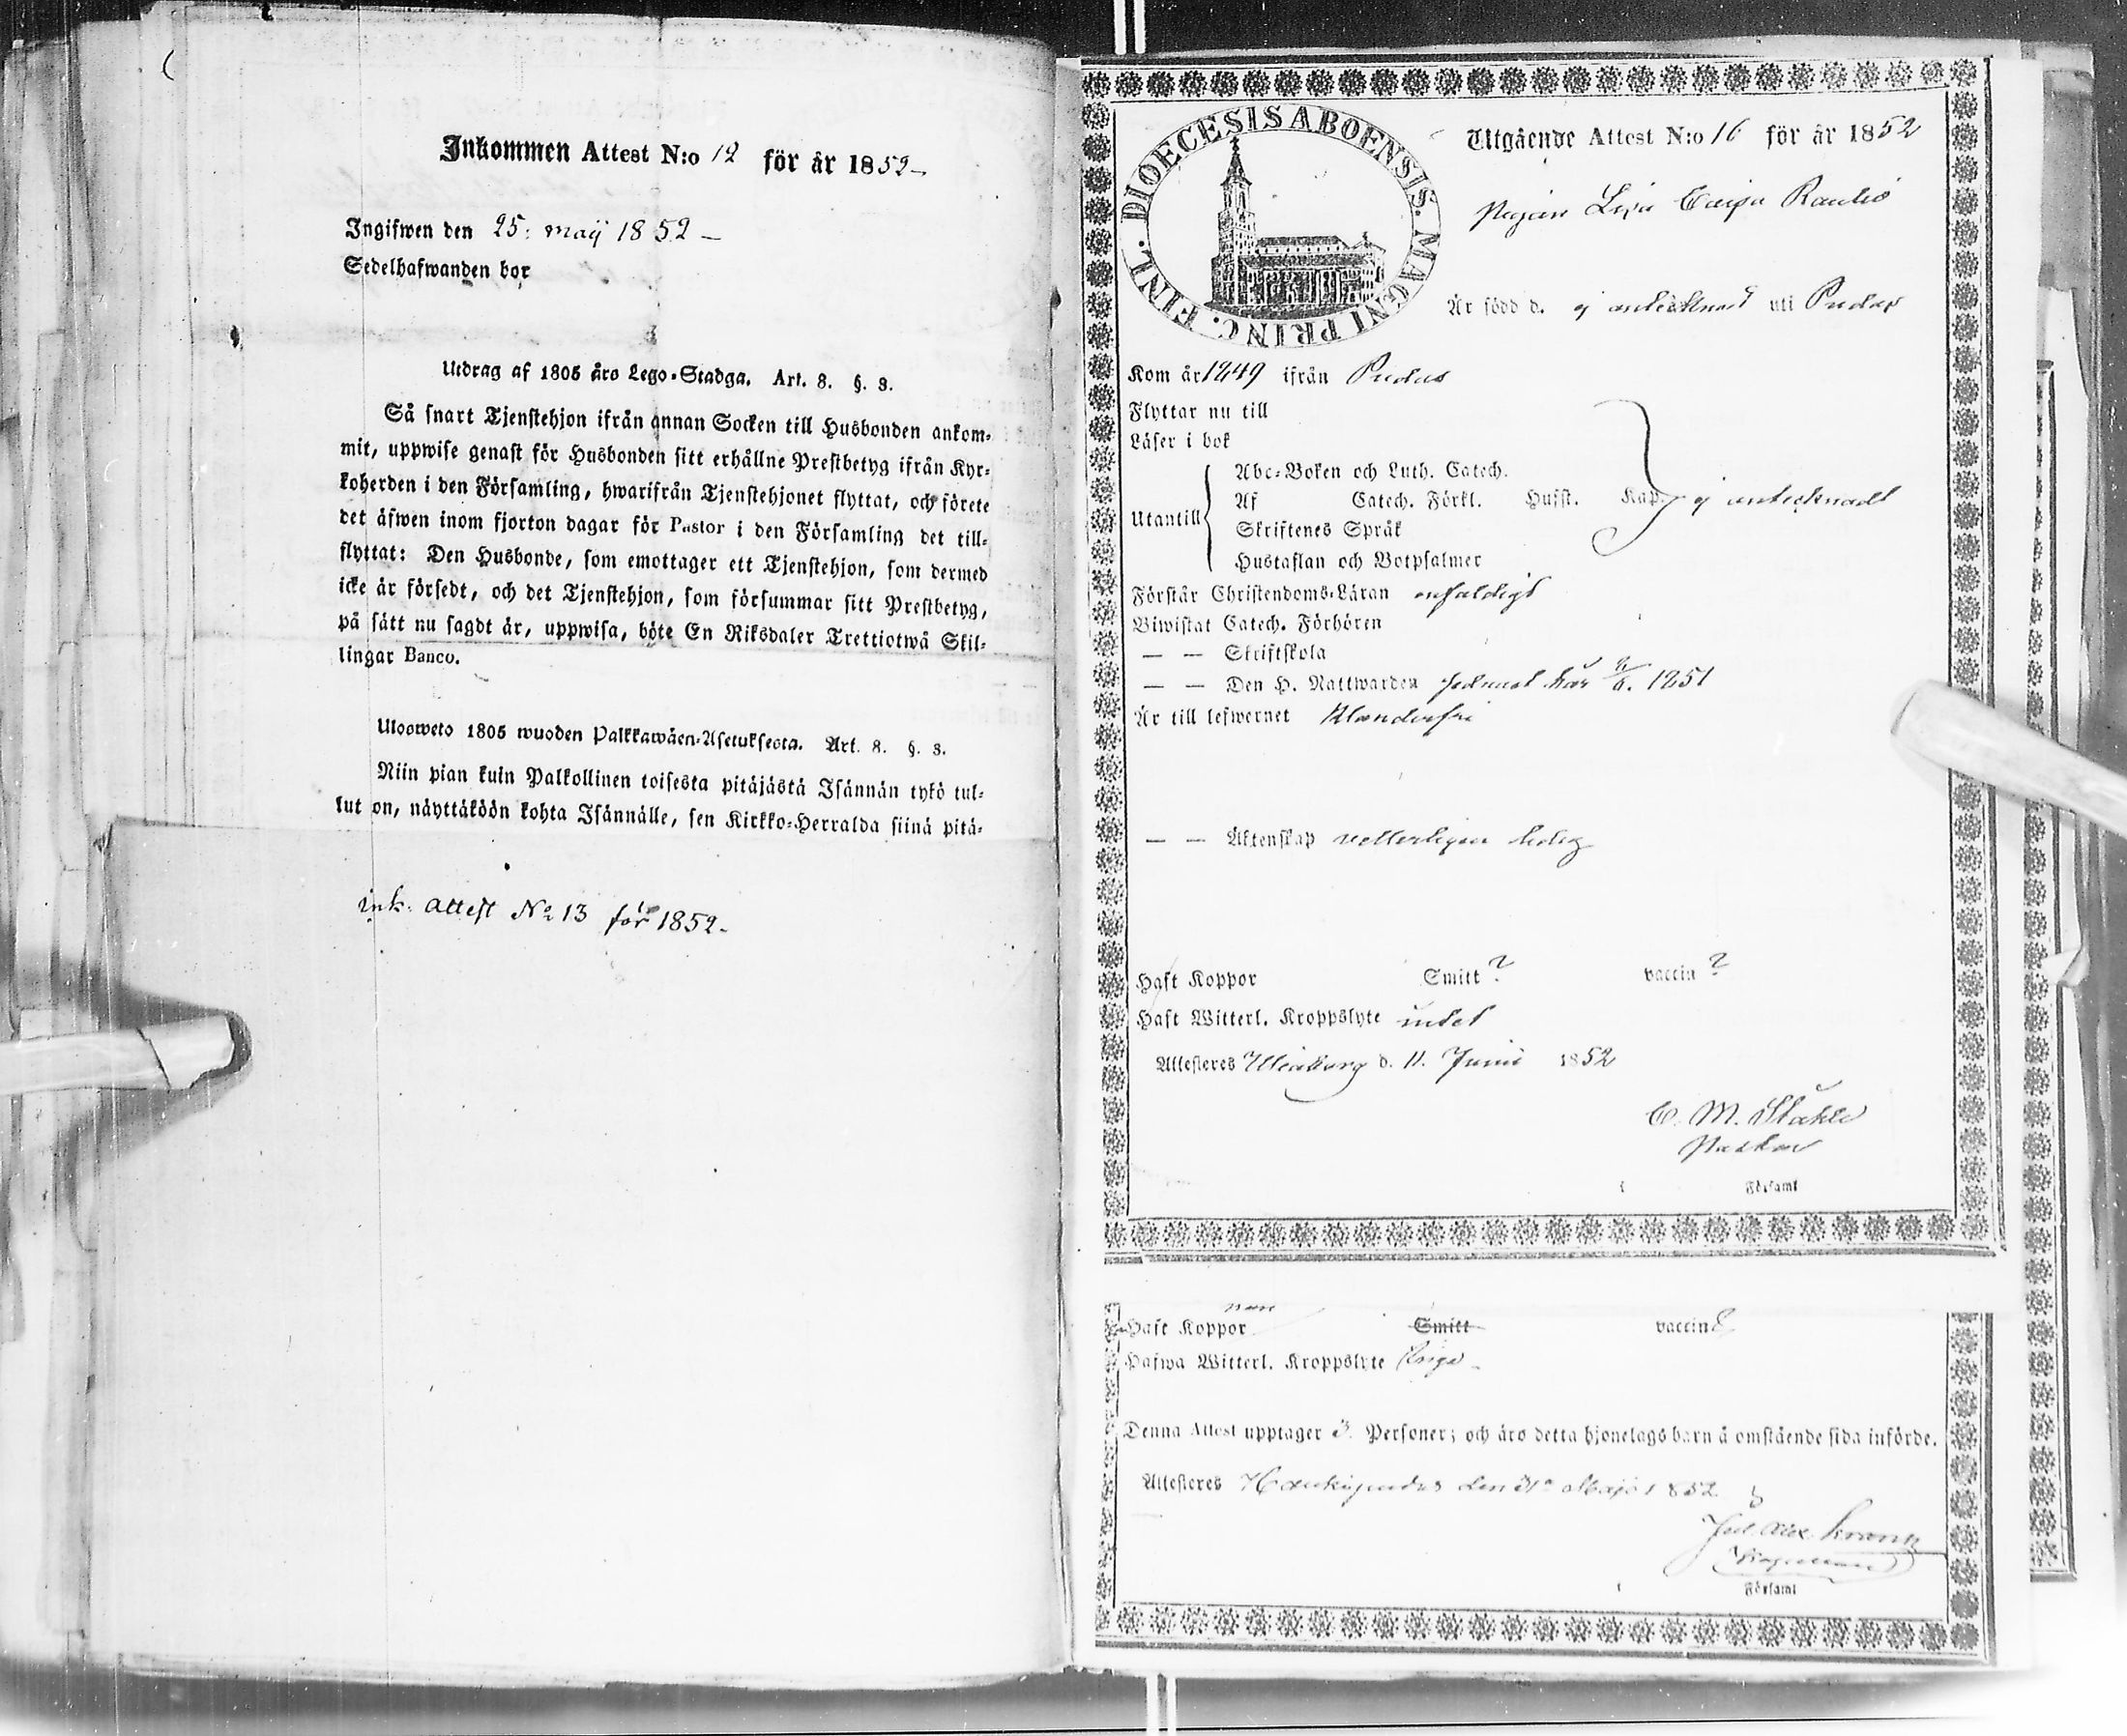 Inkommen Attest N:o 12 för år 1852
Ingifwen den 25: maij 1852
Sedelhafwanden bor
Utdrag af 1805 års Lego-Stadga. Art. 8. §. 3.
Så snart Tjenstehjon ifrån annan Socken till Husbonden ankom-
mit, uppwise genast för Husbonden sitt erhållne Prestbetyg ifrån Kyr-
koherden i den Församling, hwarifrån Tjenstehjonet flyttat, och förete
det äfwen inom fjorton dagar för Pastor i den Församling det till-
flyttat: Den Husbonde, som emottager ett Tjenstehjon, som dermed
icke är försedt, och det Tjenstehjon, som försummar sitt Prestbetyg,
på sätt nu sagdt är, uppwisa, böte En Riksdaler Trettiotwå Skil-
lingar Banco.
Ulosweto 1805 wuoden Palkkawäen-Asetuksesta. Art. 8. §. 3.
Niin pian kuin Palkollinen toisesta pitäjästä Isännän tykö tul-
lut on, näyttäköön kohta Isännälle, sen Kirkko-Herralda siinä pitä-
ink. attest No 13 för 1852.
DIOECESIS ABOENSIS. MAGNI PRINC. FINL.
Utgående Attest N:o 16 för år 1852
Pigan Lisa Caisa Rautio
Är född d. ej antecknadt uti Pudas
Kom år 1849 ifrån Pudas
Flyttar nu till
Läser i bok
Utantill
Abc-Boken och Luth. Catech.
Af Catech. Förkl. Husst. Kap. ej antecknadt
Skriftenes Språk
Hustaflan och Botpsalmer
Förstår Christendoms-Läran enfaldigt
Biwistat Catech. Förhören
— — Skriftskola
— — Den H. Nattwarden sednast här 1851
Är till lefwernet klanderfri
— — Äktenskap vetterligen ledig
Haft Koppor Smitt ? vaccin ?
Haft Witterl. Kroppslyte intet
Attesteres Uleåborg d. 11. Junii 1852
C. M. Ståhle
Pastor
i Församl
Haft Koppor Smitt vaccin
Hafwa Witterl. Kroppslyte inga
Denna Attest upptager 3. Personer; och äro detta hjonelags barn å omstående sida införde.
Attesteres Haukipudas den 31 Maji 1852
i Församl